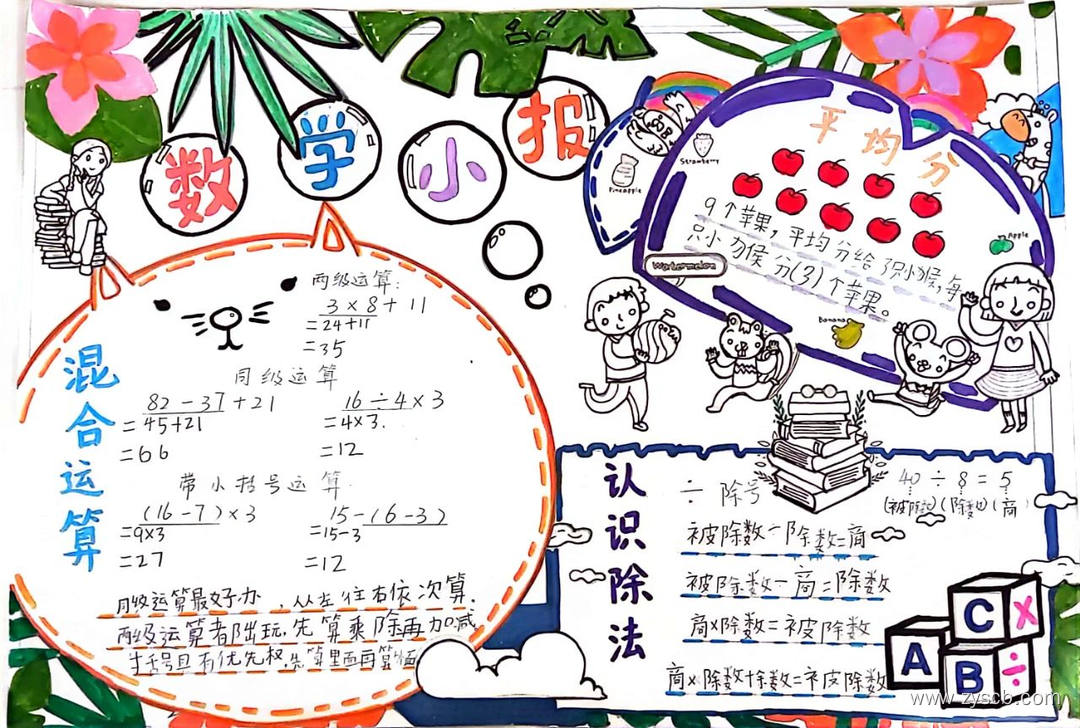 数学小报
平均分
Strawberry
Pineapple
9个苹果,平均分给3只小猴,每
只小猴分(3)个苹果。
Apple
Watermelon
Banana
混合运算
两级运算:
3×8+11
=24+11
=35
同级运算
82-37+21
=45+21
=66
16÷4×3
=4×3.
=12
带小括号运算
(16-7)×3
=9×3
=27
15-(6-3)
=15-3
=12
同级运算最好办,从左往右依次算.
两级运算者出玩.先算乘除再加减
括号里有优先权.先算里面再算
认识除法
÷ 除号
40÷8=5
(被除数)(除数)(商)
被除数÷除数=商
被除数÷商=除数
商×除数=被除数
商×除数+余数=被除数
A B C × ÷
www.zyscb.com